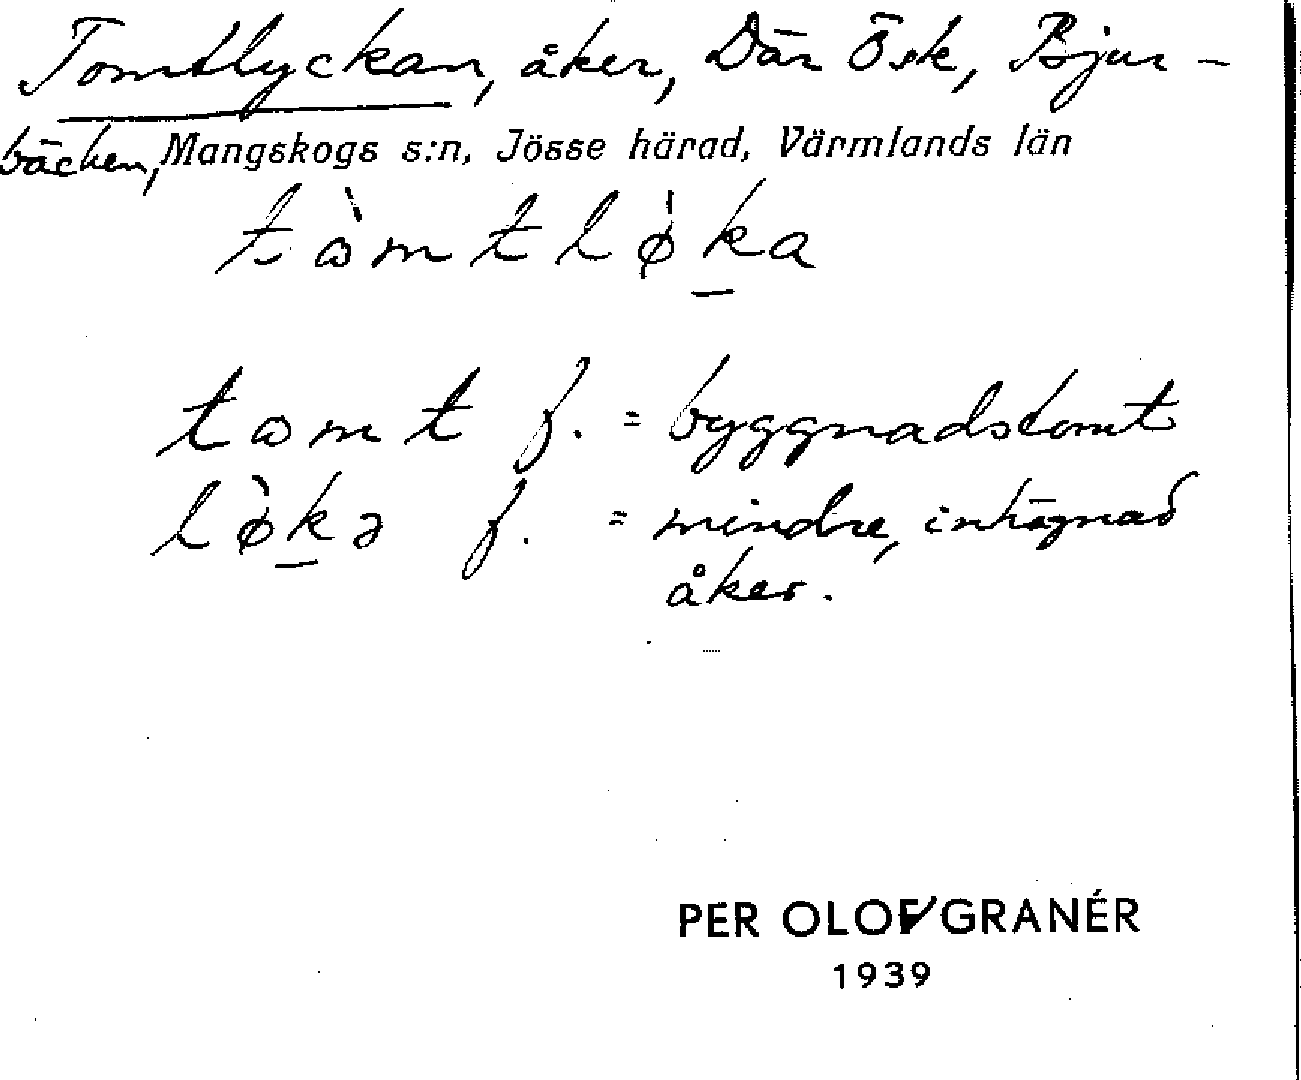 Tomtlyckan, åker, Där Ösk, Bjur-
bäcken, Mangskogs s:n, Jösse härad, Värmlands län
tòmtløka
tomt f. = byggnadstomt
lø̀kə f. = mindre, inhägnad
åker.
PER OLOF GRANÉR
1939